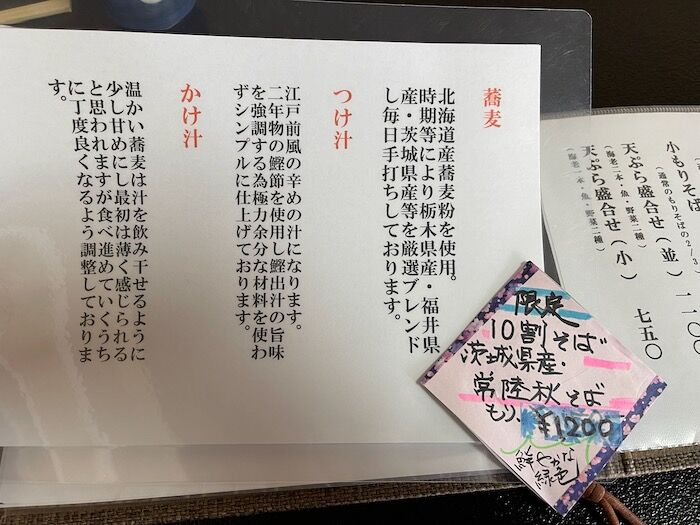 蕎麦
北海道産蕎麦粉を使用。
時期等により栃木県産・福井県
産・茨城県産等を厳選ブレンド
し毎日手打ちしております。
つけ汁
江戸前風の辛めの汁になります。
二年物の鰹節を使用し鰹出汁の旨味
を強調する為極力余分な材料を使わ
ずシンプルに仕上げております。
かけ汁
温かい蕎麦は汁を飲み干せるように
少し甘めにし最初は薄く感じられる
と思われますが食べ進めていくうち
に丁度良くなるよう調整しておりま
す。
小もりそば
(通常のもりそばの2/3
天ぷら盛合せ(並) 一一〇〇
(海老二本・魚・野菜三種)
天ぷら盛合せ(小) 七五〇
(海老一本・魚・野菜二種)
限定
10割そば
茨城県産・
常陸秋そば
もり、¥1,200
鮮やかな
緑色